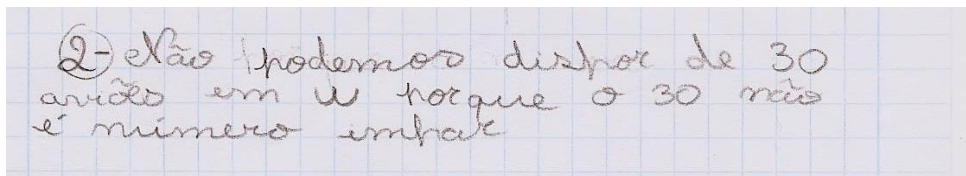 2- Não podemos dispor de 30
aviões em W porque o 30 não
é número impar